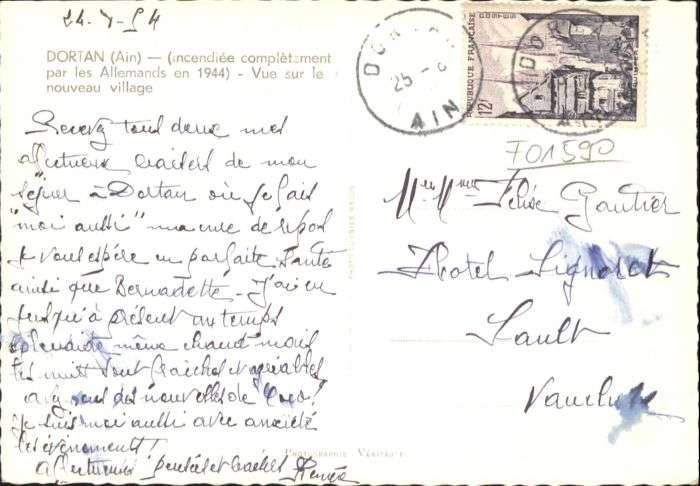 24-7-54
DORTAN (Ain) — (incendiée complètement
par les Allemands en 1944) - Vue sur le
nouveau village
Recevez tous deux mes
affectueux baisers de mon
séjour à Dortan où je fais
"moi aussi" ma cure de repos
Je vous espère en parfaite santé
ainsi que Bernadette. J'ai eu
jusqu'à présent un temps
splendide même chaud mais
les nuits sont fraîches et agréables
avez vous des nouvelles de
Je suis moi aussi avec anxiété
les évènements!
affectueuses pensées et baisers Renée
DORTAN
25 -
AIN
REPUBLIQUE FRANÇAISE
POSTES
12F
F01590
Mr et Mme Félix Gautier
Hotel Signoret
Sault
Vaucluse
PHOTOGRAPHIE VÉRITABLE